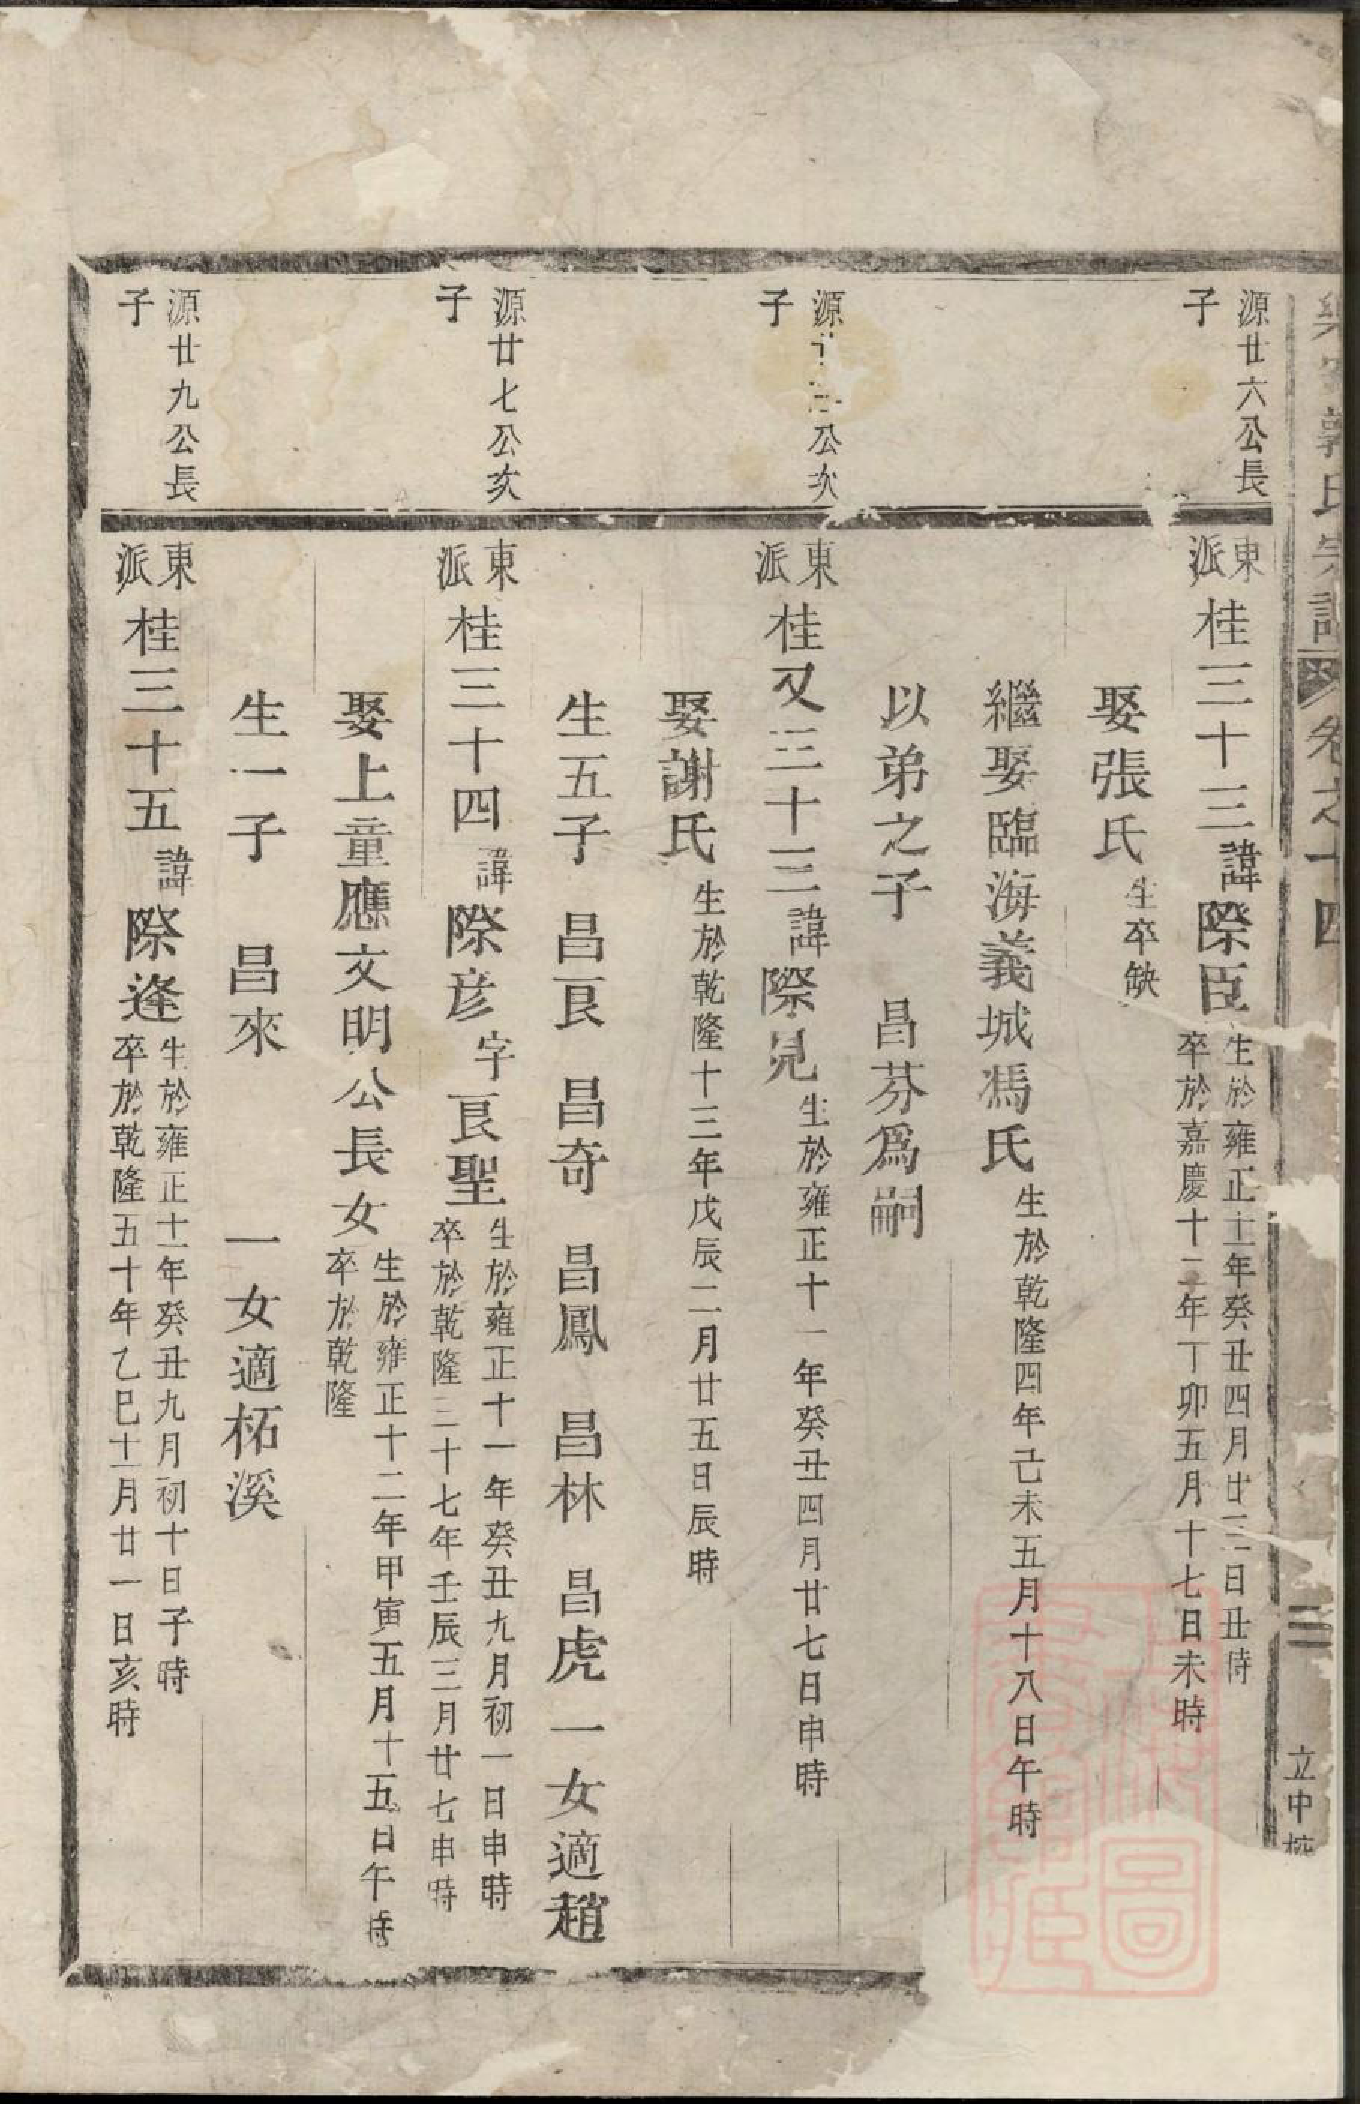 氏宗譜 卷之十四 二 立中
源廿六公長
子
東
派
桂三十三諱際臣
生於雍正十一年癸丑四月廿三日丑時
卒於嘉慶十二年丁卯五月十七日未時
娶張氏 生卒缺
繼娶臨海義城馮氏 生於乾隆四年己未五月十八日午時
以弟之子 昌芬爲嗣
源公次
子
東
派
桂又三十三諱際見 生於雍正十一年癸丑四月廿七日申時
娶謝氏 生於乾隆十三年戊辰二月廿五日辰時
生五子 昌艮 昌奇 昌鳳 昌林 昌虎 一女適趙
源廿七公次
子
東
派
桂三十四諱際彦字艮聖
生於雍正十一年癸丑九月初一日申時
卒於乾隆三十七年壬辰三月廿七申時
娶上童應文明公長女
生於雍正十二年甲寅五月十五日午時
卒於乾隆
生一子 昌來 一女適柘溪
源廿九公長
子
東
派
桂三十五諱際逢
生於雍正十一年癸丑九月初十日子時
卒於乾隆五十年乙巳十一月廿一日亥時